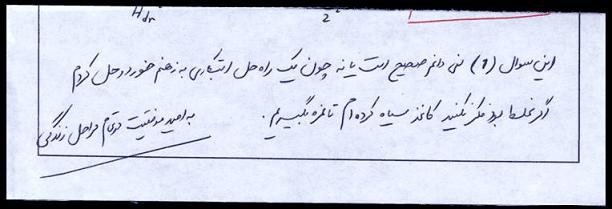 Hdr 2
این سوال (1) نمی دانم صحیح است یا نه چون یک راه حل ابتکاری به ذهنم خورد و حل کردم
اگر غلط بود فکر نکنید کاغذ سیاه کرده ام تا نمره بگیرم. به امید موفقیت در تمام مراحل زندگی